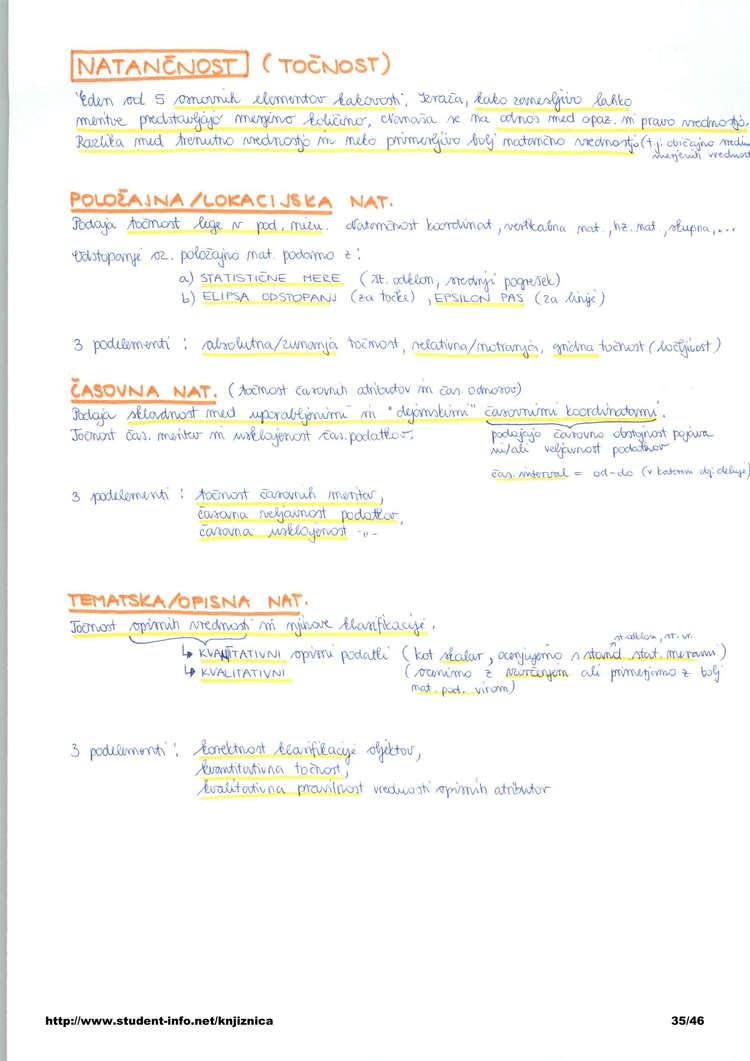 NATANČNOST (TOČNOST)
Eden od 5 osnovnih elementov kakovosti. Izraža, kako zanesljivo lahko
meritve predstavljajo merjeno količino, nanaša se na odnos med opaz. in pravo vrednostjo.
Razlika med trenutno vrednostjo in neko primerljivo bolj natančno vrednostjo (t.j. običajno sredin
merjenih vrednost
POLOŽAJNA/LOKACIJSKA NAT.
Podaja točnost lege v pod. nizu. Natančnost koordinat, vertikalna nat., hz. nat., skupna,...
Odstopanje oz. položajno nat. podamo z:
a) STATISTIČNE MERE (st. odklon, srednji pogrešek)
b) ELIPSA ODSTOPANJ (za točke), EPSILON PAS (za linije)
3 podelementi: absolutna/zunanja točnost, relativna/notranja, gridna točnost (ločljivost)
ČASOVNA NAT. (točnost časovnih atributov in čas. odnosov)
Podaja skladnost med uporabljenimi in "dejanskimi" časovnimi koordinatami.
Točnost čas. meritev in usklajenost čas. podatkov.
podajajo časovno obstojnost pojava
in/ali veljavnost podatkov
čas. interval = od-do (v katerem doj. deluje)
3 podelementi: točnost časovnih meritev,
časovna veljavnost podatkov,
časovna usklajenost -"-
TEMATSKA/OPISNA NAT.
Točnost opisnih vrednosti in njihove klasifikacije.
st. odklon, sr. vr.
↳ KVANTITATIVNI opisni podatki (kot skalar, ocenjujemo s stand. stat. merami)
↳ KVALITATIVNI (ocenimo z izvrčenjem ali primerjamo z bolj
nat. pod. virom)
3 podelementi: korektnost klasifikacije objektov,
kvantitativna točnost,
kvalitativna pravilnost vrednosti opisnih atributov
http://www.student-info.net/knjiznica
35/46